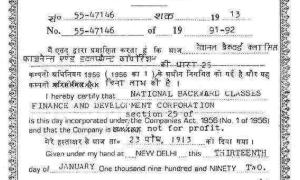 सं० 55-47146 शक 1913
No. 55-47146 of 1991-92
मैं एतद् द्वारा प्रमाणित करता हूं कि आज नेशनल बैकवर्ड क्लासिस
फाइनेंस एण्ड
की धारा 25
कम्पनी अधिनियम 1956 (1956 का 1) के अधीन निगमित की गई है और यह
कम्पनी बिना लाभ की है।
I hereby certify that NATIONAL BACKWARD CLASSES
FINANCE AND DEVELOPMENT CORPORATION
section 25 of
is this day incorporated under the Companies Act, 1956 (No. 1 of 1956)
and that the Company is not for profit.
मेरे हस्ताक्षर से आज ता० 23 पौष, 1913 को दिया गया।
Given under my hand at NEW DELHI this THIRTEENTH
day of JANUARY One thousand nine hundred and NINETY TWO.